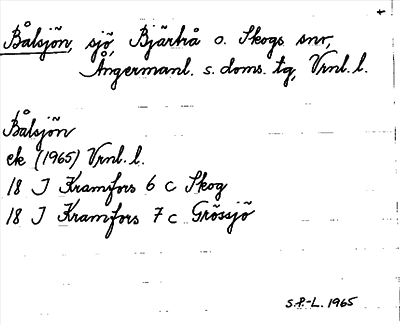 Bålsjön, sjö, Bjärtrå o. Skogs snr,
Ångermanl. s. doms. tg, Vrnl. l.
Bålsjön
ek (1965) Vrnl. l.
18 J Kramfors 6 c Skog
18 J Kramfors 7 c Grössjö
S.P.-L. 1965